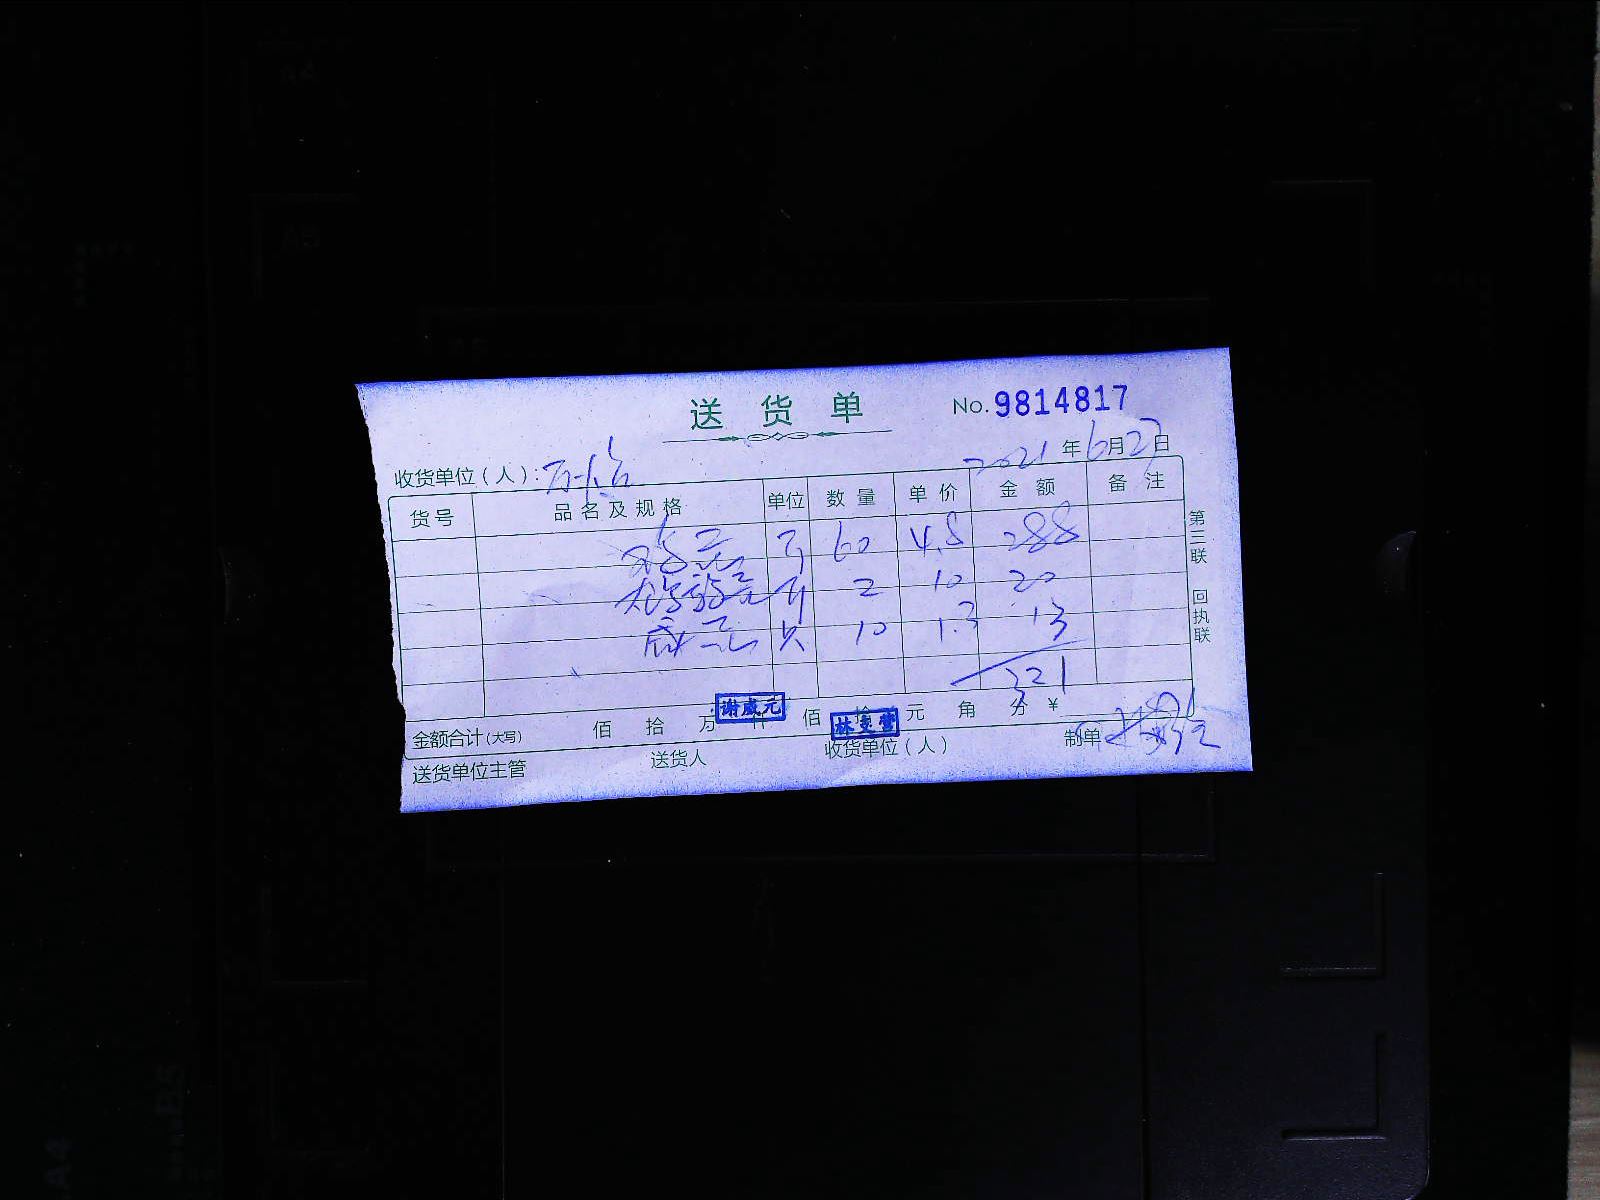 送货单 No. 9814817
收货单位(人): 2021年6月27日
货号 品名及规格 单位 数量 单价 金额 备注
鸡蛋 斤 60 4.8 288
斤 2 10 20
咸蛋 只 10 1.3 13
321
金额合计(大写) 佰 拾 万 仟 佰 拾 元 角 分 ¥
送货单位主管 送货人 收货单位(人) 制单
谢成元
第三联 回执联